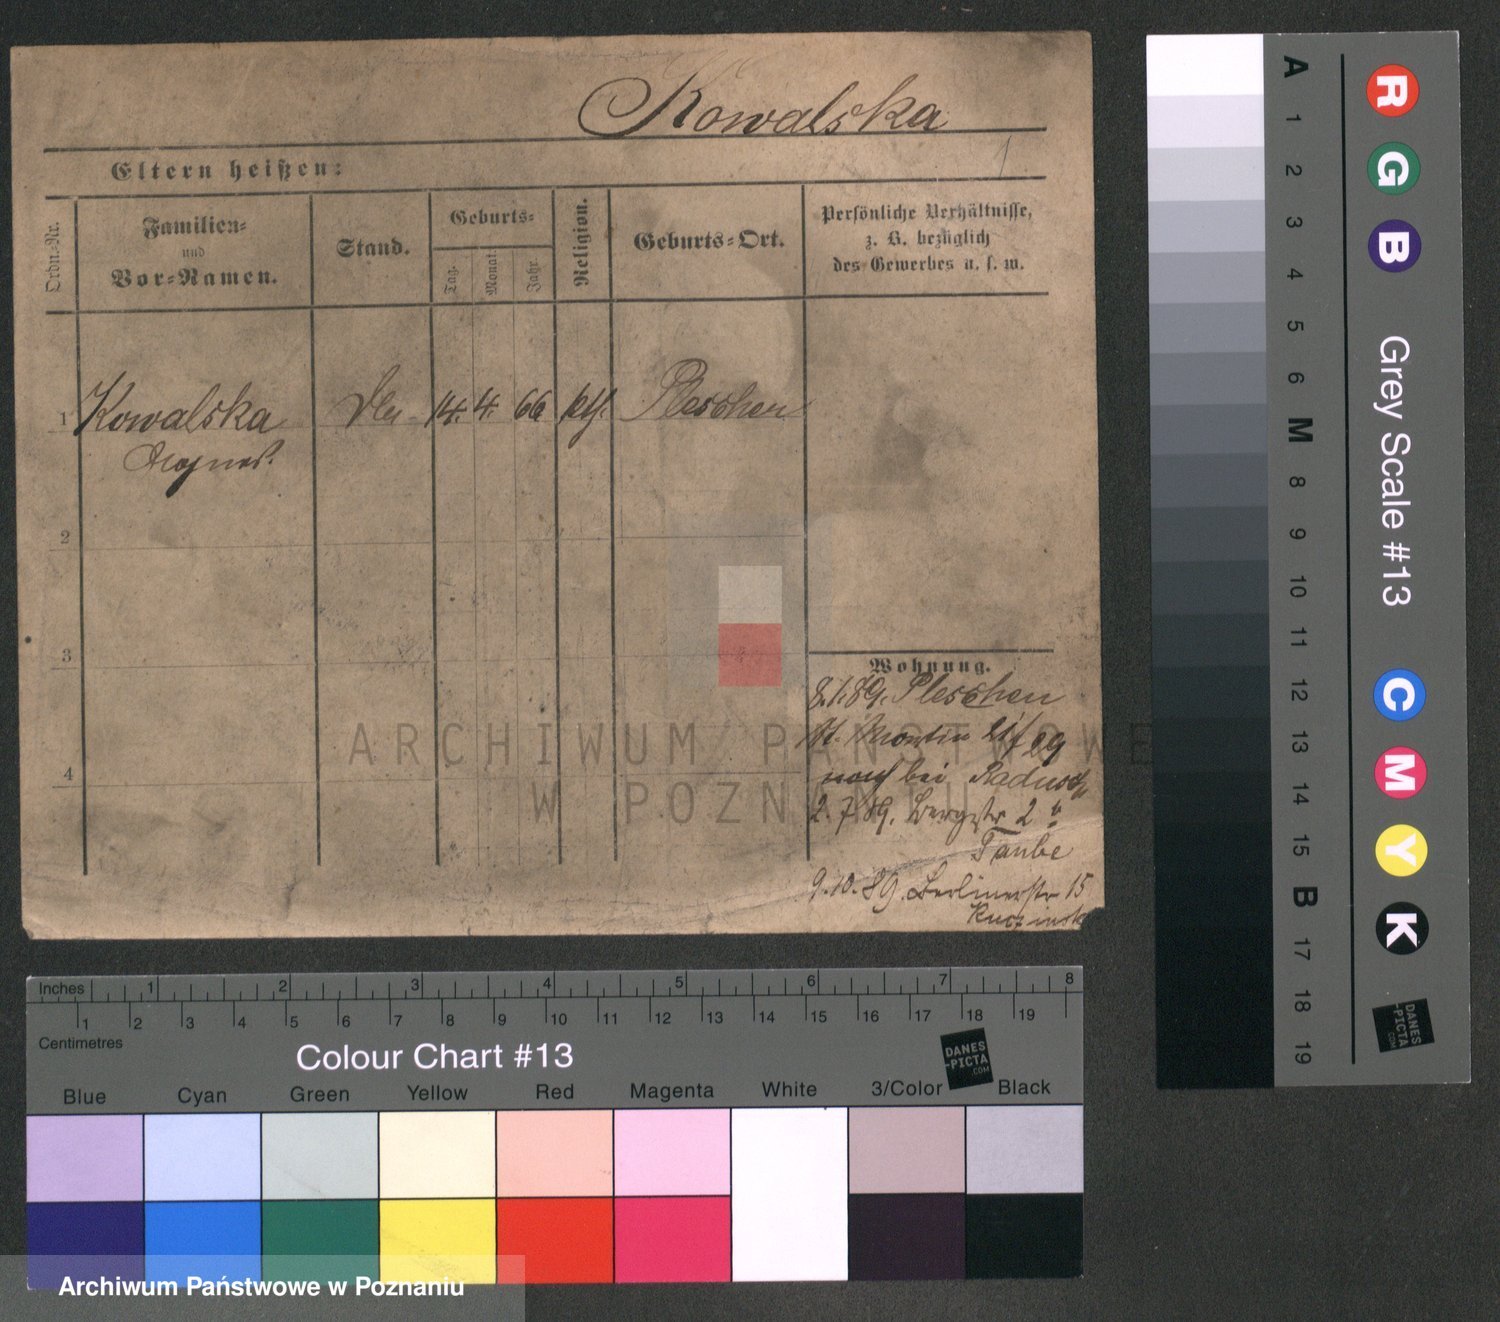 Kowalska
1
Eltern heißen:
Ordn.-Nr.
Familien-
und
Vor-Namen.
Stand.
Geburts-
Tag.
Monat.
Jahr.
Religion.
Geburts-Ort.
Persönliche Verhältnisse,
z. B. bezüglich
des Gewerbes u. s. w.
1 Kowalska 14. 4. 66 kth. Pleschen
Agnes.
2
3
4
Wohnung.
8.1.89. Pleschen
St. Martin 29
noch bei
2.7.89. Bergstr 2
Taube
9.10.89. Berlinerstr 15
ARCHIWUM PAŃSTWOWE
W POZNANIU
Inches 1 2 3 4 5 6 7 8
1 2 3 4 5 6 7 8 9 10 11 12 13 14 15 16 17 18 19
Centimetres
Colour Chart #13
DANES
-PICTA
.COM
Blue Cyan Green Yellow Red Magenta White 3/Color Black
A 1 2 3 4 5 6 M 8 9 10 11 12 13 14 15 B 17 18 19
R G B Grey Scale #13 C M Y K
DANES
-PICTA
.COM
Archiwum Państwowe w Poznaniu